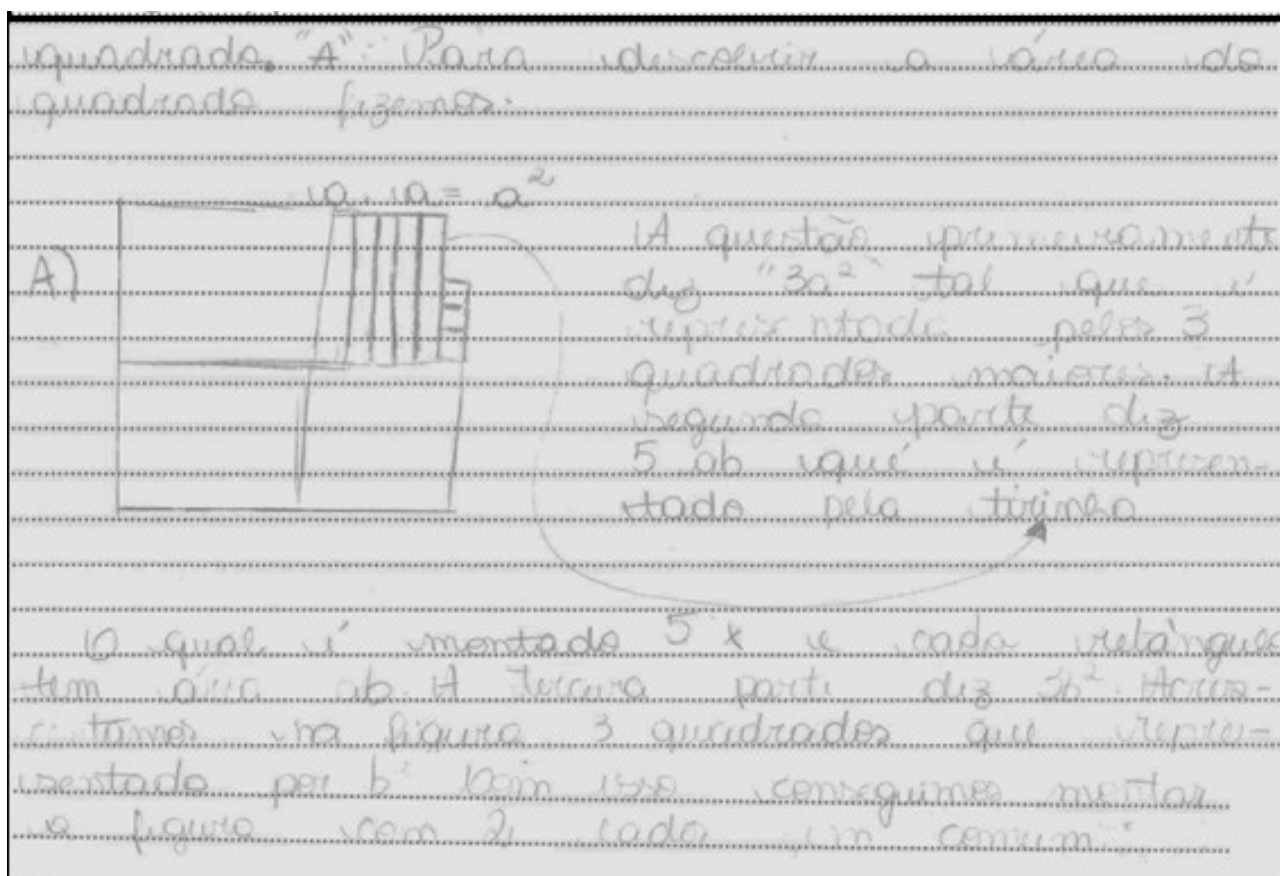 quadrado. "A": Para descobrir a área do
quadrado fizemos:
a . a = a²
A)
A questão primeiramente
diz "3a²" tal que é
representada pelos 3
quadrados maiores. A
segunda parte diz
5 ab que é represen-
tado pela tirinha
O qual é montado 5 x e cada retângulo
tem área ab. A terceira parte diz 3b². Acres-
centamos na figura 3 quadrados que repre-
sentado por b² Com isso conseguimos montar
a figura com 2 lados em comum.